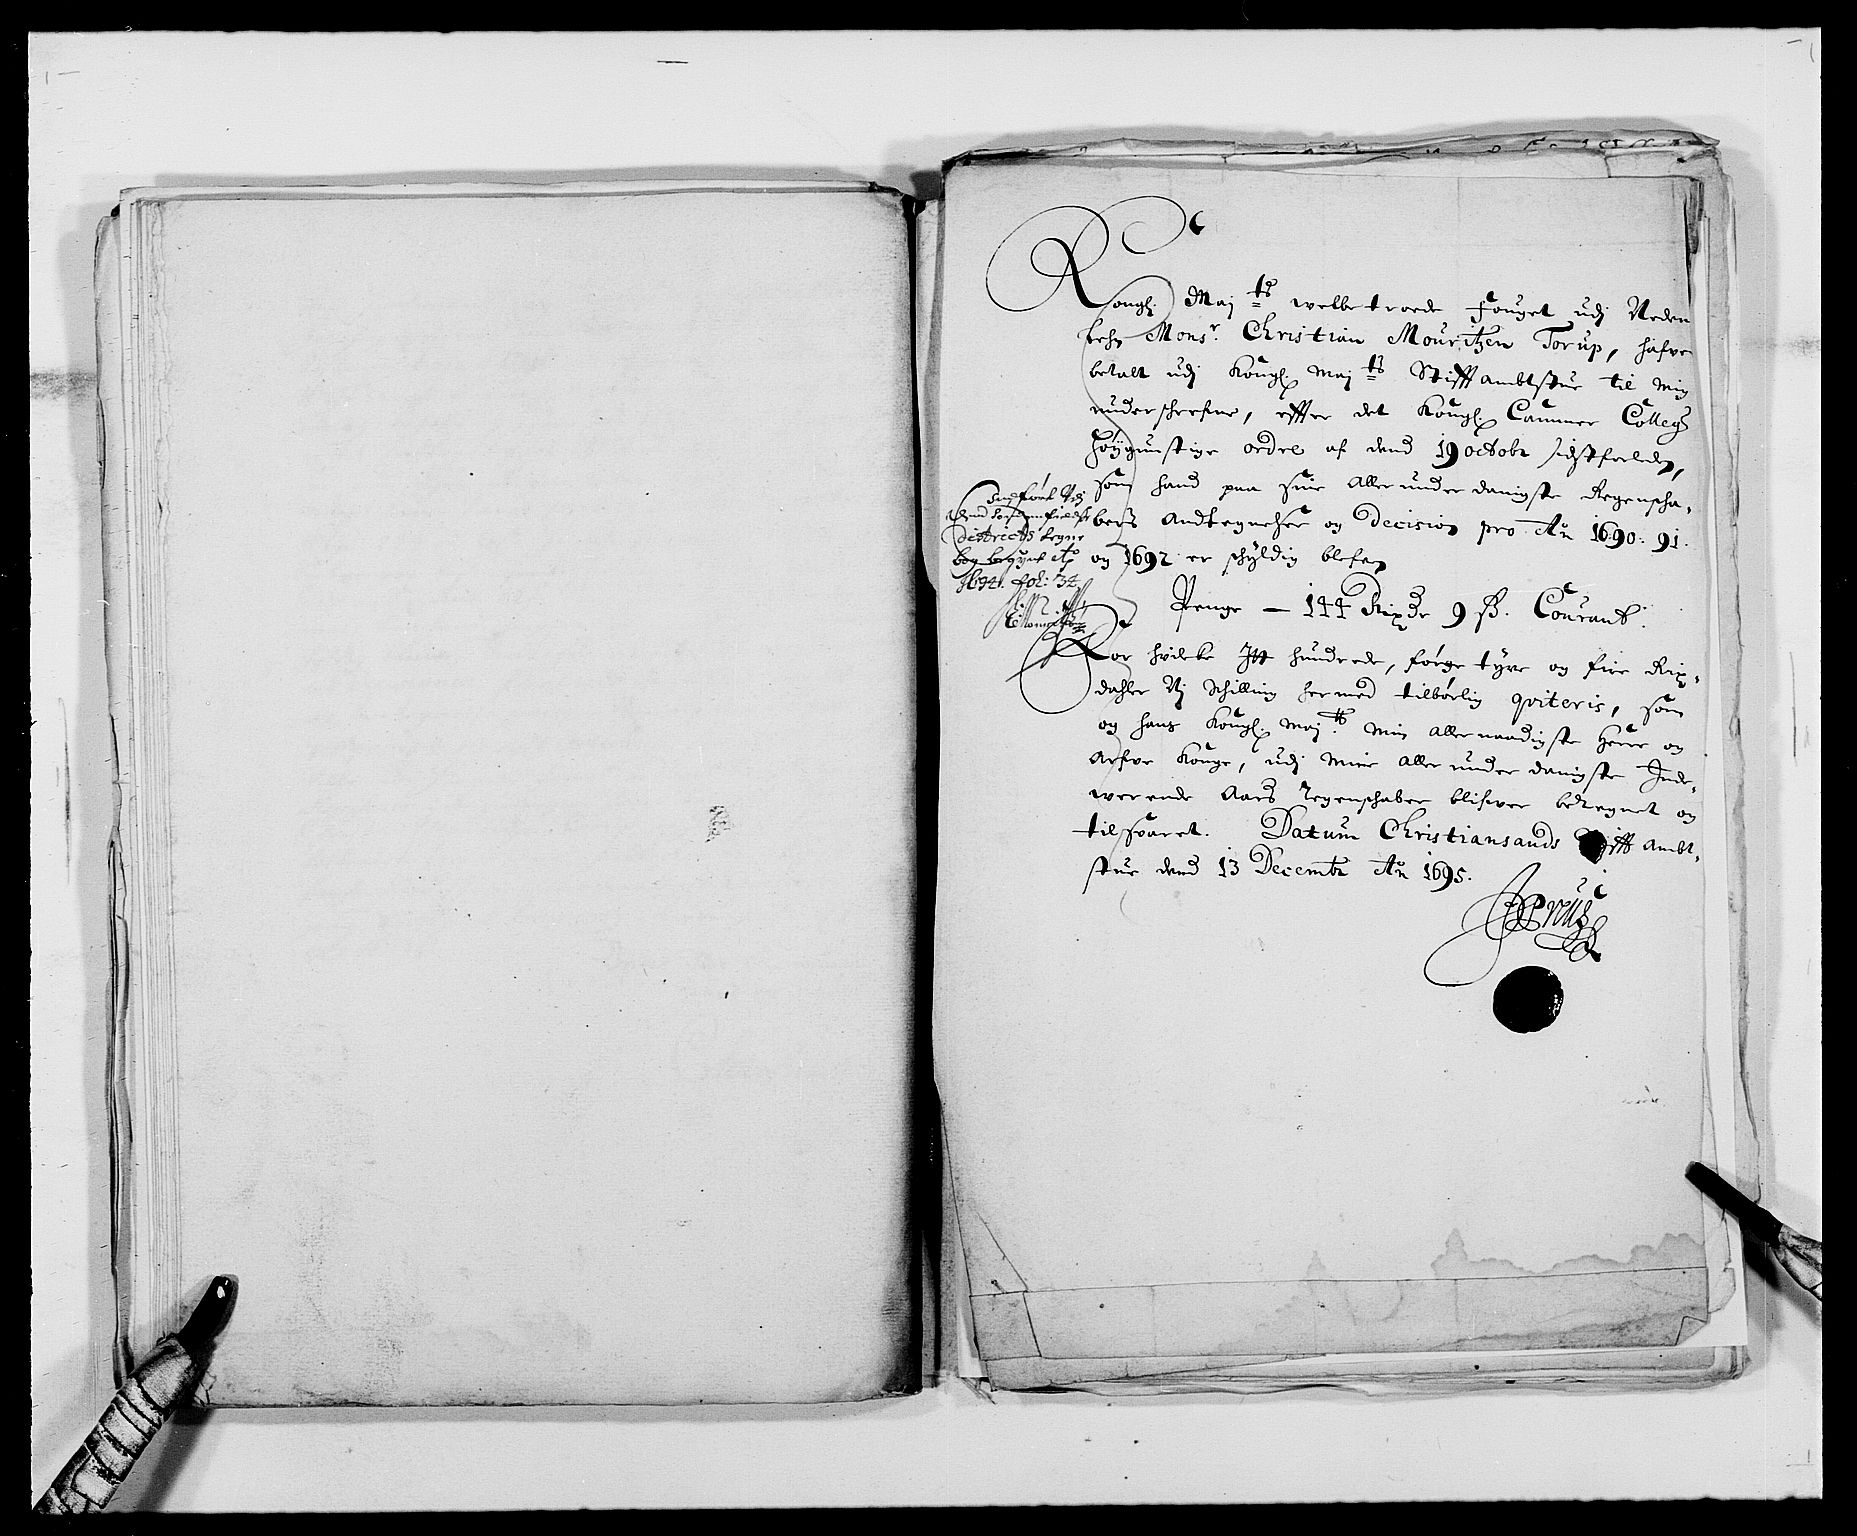 Kongl: Maj:ts welbetroede Fouget udj Neden
Mons:r Christian Mouritzen Torup, hafver
betalt udj Kongl. Maj:ts Stifftambtstue til mig
underschrefne, effter det Kongl. Cammer Collegij
høÿgunstige ordre af dend 19 octobr sidstleeden,
som hand paa sine allerunderdanigste Regenscha-
bers Andtegnelser og Decision pro Ao 1690. 91.
og 1692 er schÿldig blefen
Penge — 144 Rixdr 9 ß. Courant.
For hvilcke Jtt hundrede, førge tÿve og fire Rix-
dahler Nj Schilling hermed tilbørlig qviteris, som
og hans Kongl. Maj:ts min allernaadigste Herre og
Arfve Konge, udj mine allerunderdanigste Jnde-
werende Aars Regenschaber blifver beregnet og
tilsvaret. Datum Christiansands Stifft Ambt-
stue dend 13 Decembr Ao 1695.
Indført Udj
districts Regne
bog
1694. fol: 34
JPreus